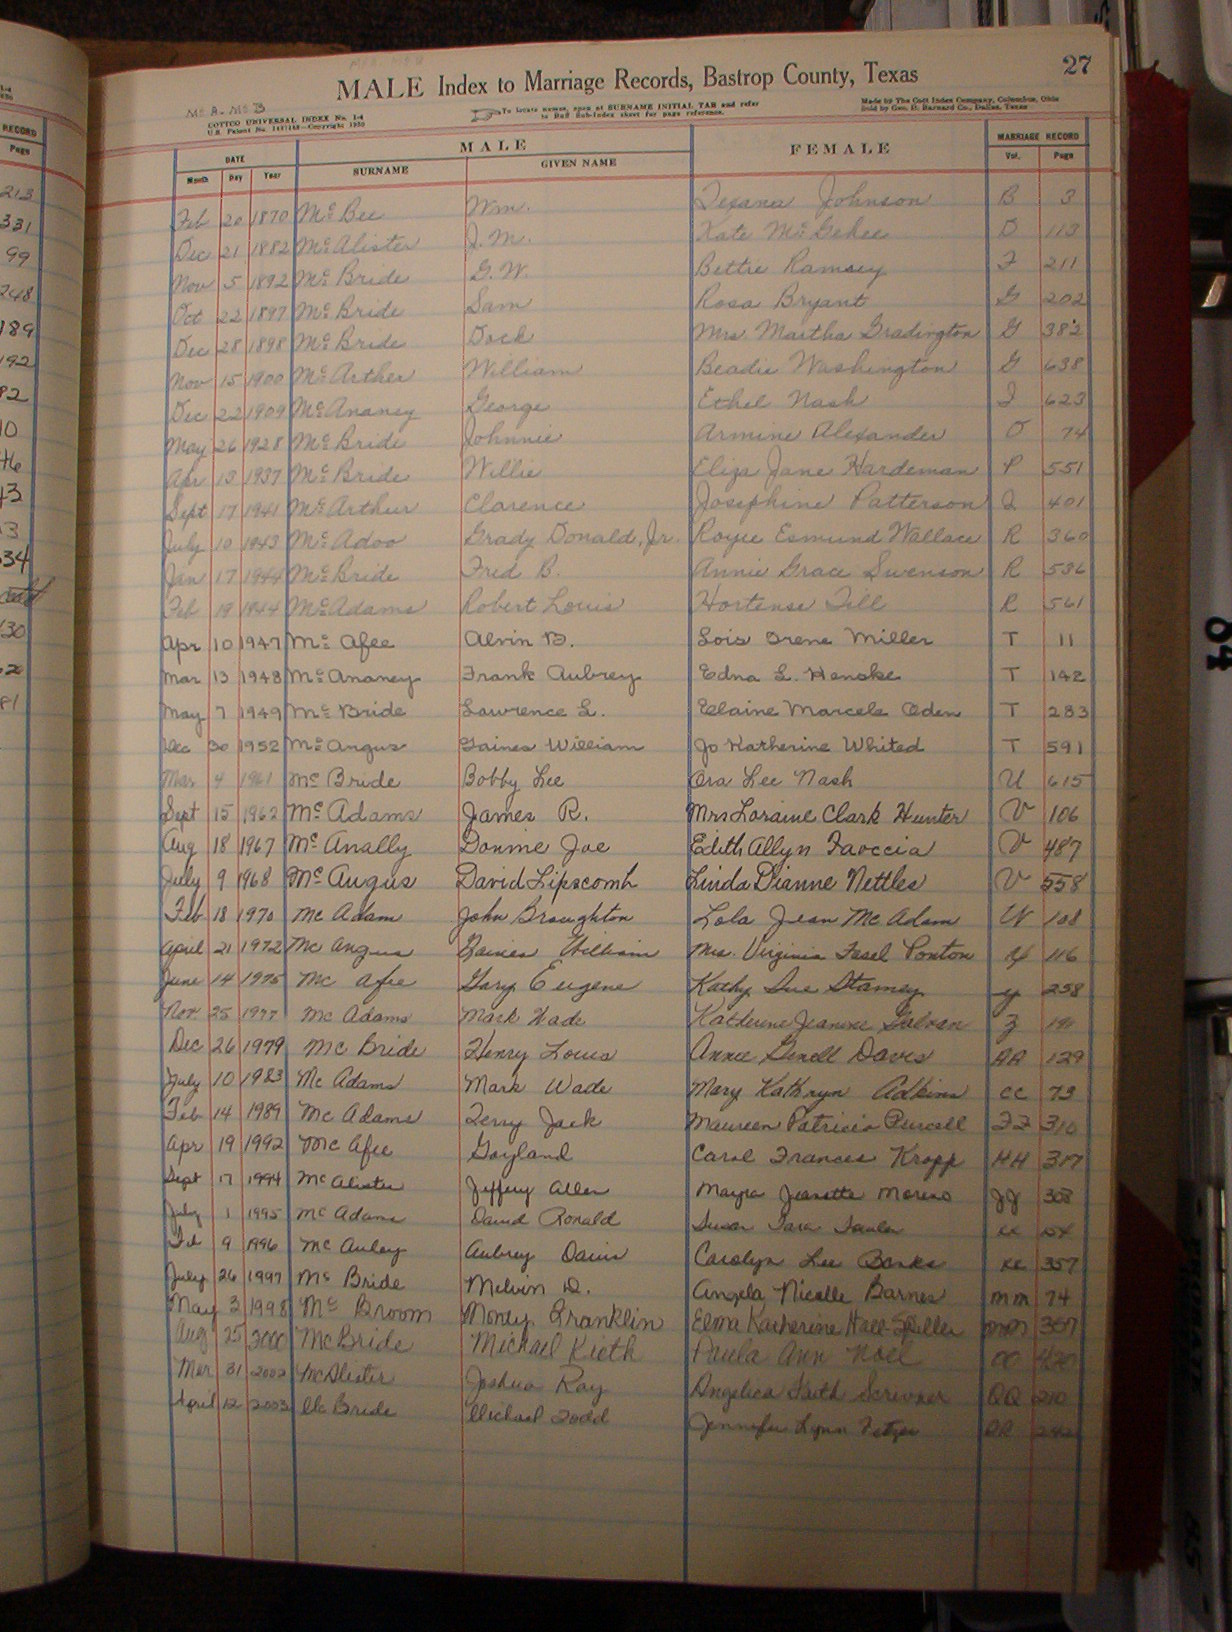 213
331
99
248
189
192
82
10
46
43
13
534
630
62
81
RECORD
Page
27
MALE Index to Marriage Records, Bastrop County, Texas
Mc A. Mc B
COTTCO UNIVERSAL INDEX No. 1-4
U.S. Patent No. —Copyright 1930
To locate names, open at SURNAME INITIAL TAB and refer
to Buff Sub-Index sheet for page reference.
Made by The Cott Index Company, Columbus, Ohio
Sold by Geo. D. Barnard Co., Dallas, Texas
DATE MALE FEMALE MARRIAGE RECORD
Month Day Year SURNAME GIVEN NAME Vol. Page
Feb 20 1870 McBee Wm. Texana Johnson B 3
Dec 21 1882 McAlister J. M. Kate McGehee D 113
Nov 5 1892 McBride G. W. Bettie Ramsey F 211
Oct 22 1897 McBride Sam Rosa Bryant G 202
Dec 28 1898 McBride Dock Mrs Martha Gradington G 382
Nov 15 1900 McArther William Beadie Washington G 638
Dec 22 1909 McAnaney George Ethel Nash I 623
May 26 1928 McBride Johnnie Armine Alexander O 74
Apr 13 1937 McBride Willie Eliza Jane Hardeman P 551
Sept 17 1941 McArthur Clarence Josephine Patterson Q 401
July 10 1943 McAdoo Grady Donald, Jr. Royce Esmund Wallace R 360
Jan 17 1944 McBride Fred B. Annie Grace Swenson R 536
Feb 19 1944 McAdams Robert Louis Hortense Till R 561
Apr 10 1947 Mc Afee Alvin B. Lois Irene Miller T 11
Mar 13 1948 McAnaney Frank Aubrey Edna L. Henske T 142
May 7 1949 Mc Bride Lawrence L. Elaine Marcele Oden T 283
Dec 30 1952 McAngus Gaines William Jo Katherine Whited T 591
Mar 4 1961 Mc Bride Bobby Lee Ora Lee Nash U 615
Sept 15 1962 Mc Adams James R. Mrs Loraine Clark Hunter V 106
Aug 18 1967 Mc Anally Donnie Joe Edith Allyn Favccia V 487
July 9 1968 Mc Angus David Lipscomb Linda Dianne Nettles V 558
Feb 18 1970 Mc Adam John Broughton Lola Jean McAdam W 108
April 21 1972 Mc Angus Gaines William Mrs. Virginia Fasel Ponton 116
June 14 1975 Mc Afee Gary Eugene Kathy Sue Stamey Y 258
Nov 25 1977 Mc Adams Mark Wade Katherine Jeanine Galvan Z
Dec 26 1979 Mc Bride Henry Louis Annie Genell Davis AA 129
July 10 1983 Mc Adams Mark Wade Mary Kathryn Adkins CC 73
Feb 14 1989 Mc Adams Terry Jack Maureen Patricia Purcell FF 310
Apr 19 1992 Mc Afee Gayland Carol Frances Kropp HH 317
Sept 17 1994 McAlister Jeffery Allen Mayra Jeanette Moreno JJ 308
July 1 1995 Mc Adams David Ronald Susan Tara KK
Feb 9 1996 Mc Auley Aubrey Davis Carolyn Lee Banks KK 357
July 26 1997 Mc Bride Melvin D. Angela Nicolle Barnes MM 74
May 2 1998 Mc Broom Monty Franklin Elma Katherine Hall Spiller MM
Aug 25 2000 McBride Michael Kieth Paula Ann Noel OO
Mar 31 2002 McAlister Joshua Ray Angelica Faith Scrivner QQ 210
April 12 2003 Mc Bride Michael Todd Jennifer Lynn 242